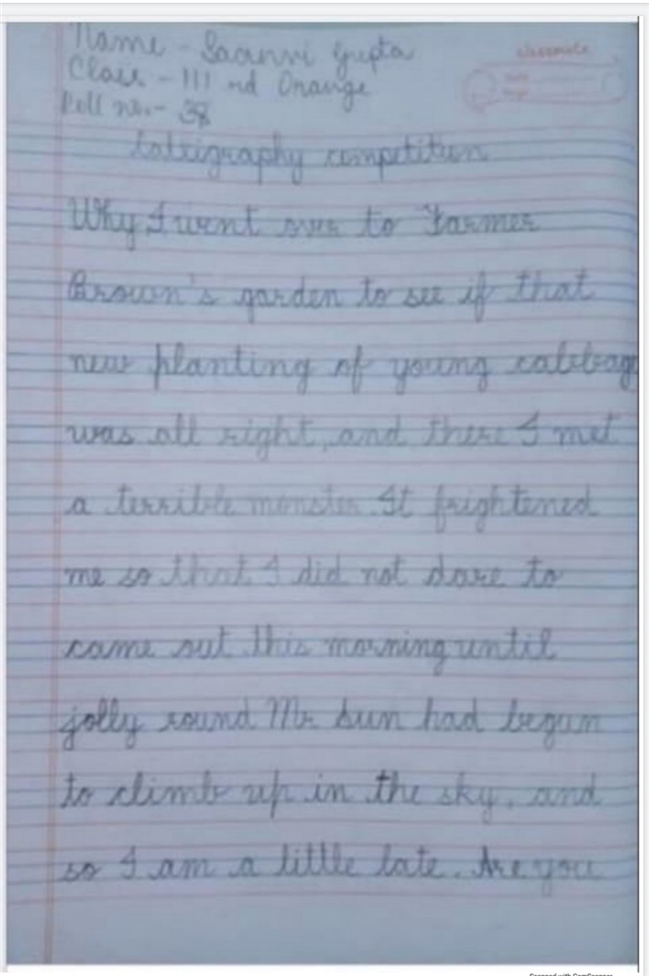 Name - Saanvi Gupta
Class - III rd Orange
Roll no.- 38
classmate
Calligraphy competition
Why I went over to Farmer
Brown's garden to see if that
new planting of young cabbage
was all right, and there I met
a terrible monster. It frightened
me so that I did not dare to
came out this morning until
jolly round Mr Sun had begun
to climb up in the sky, and
so I am a little late. Are you